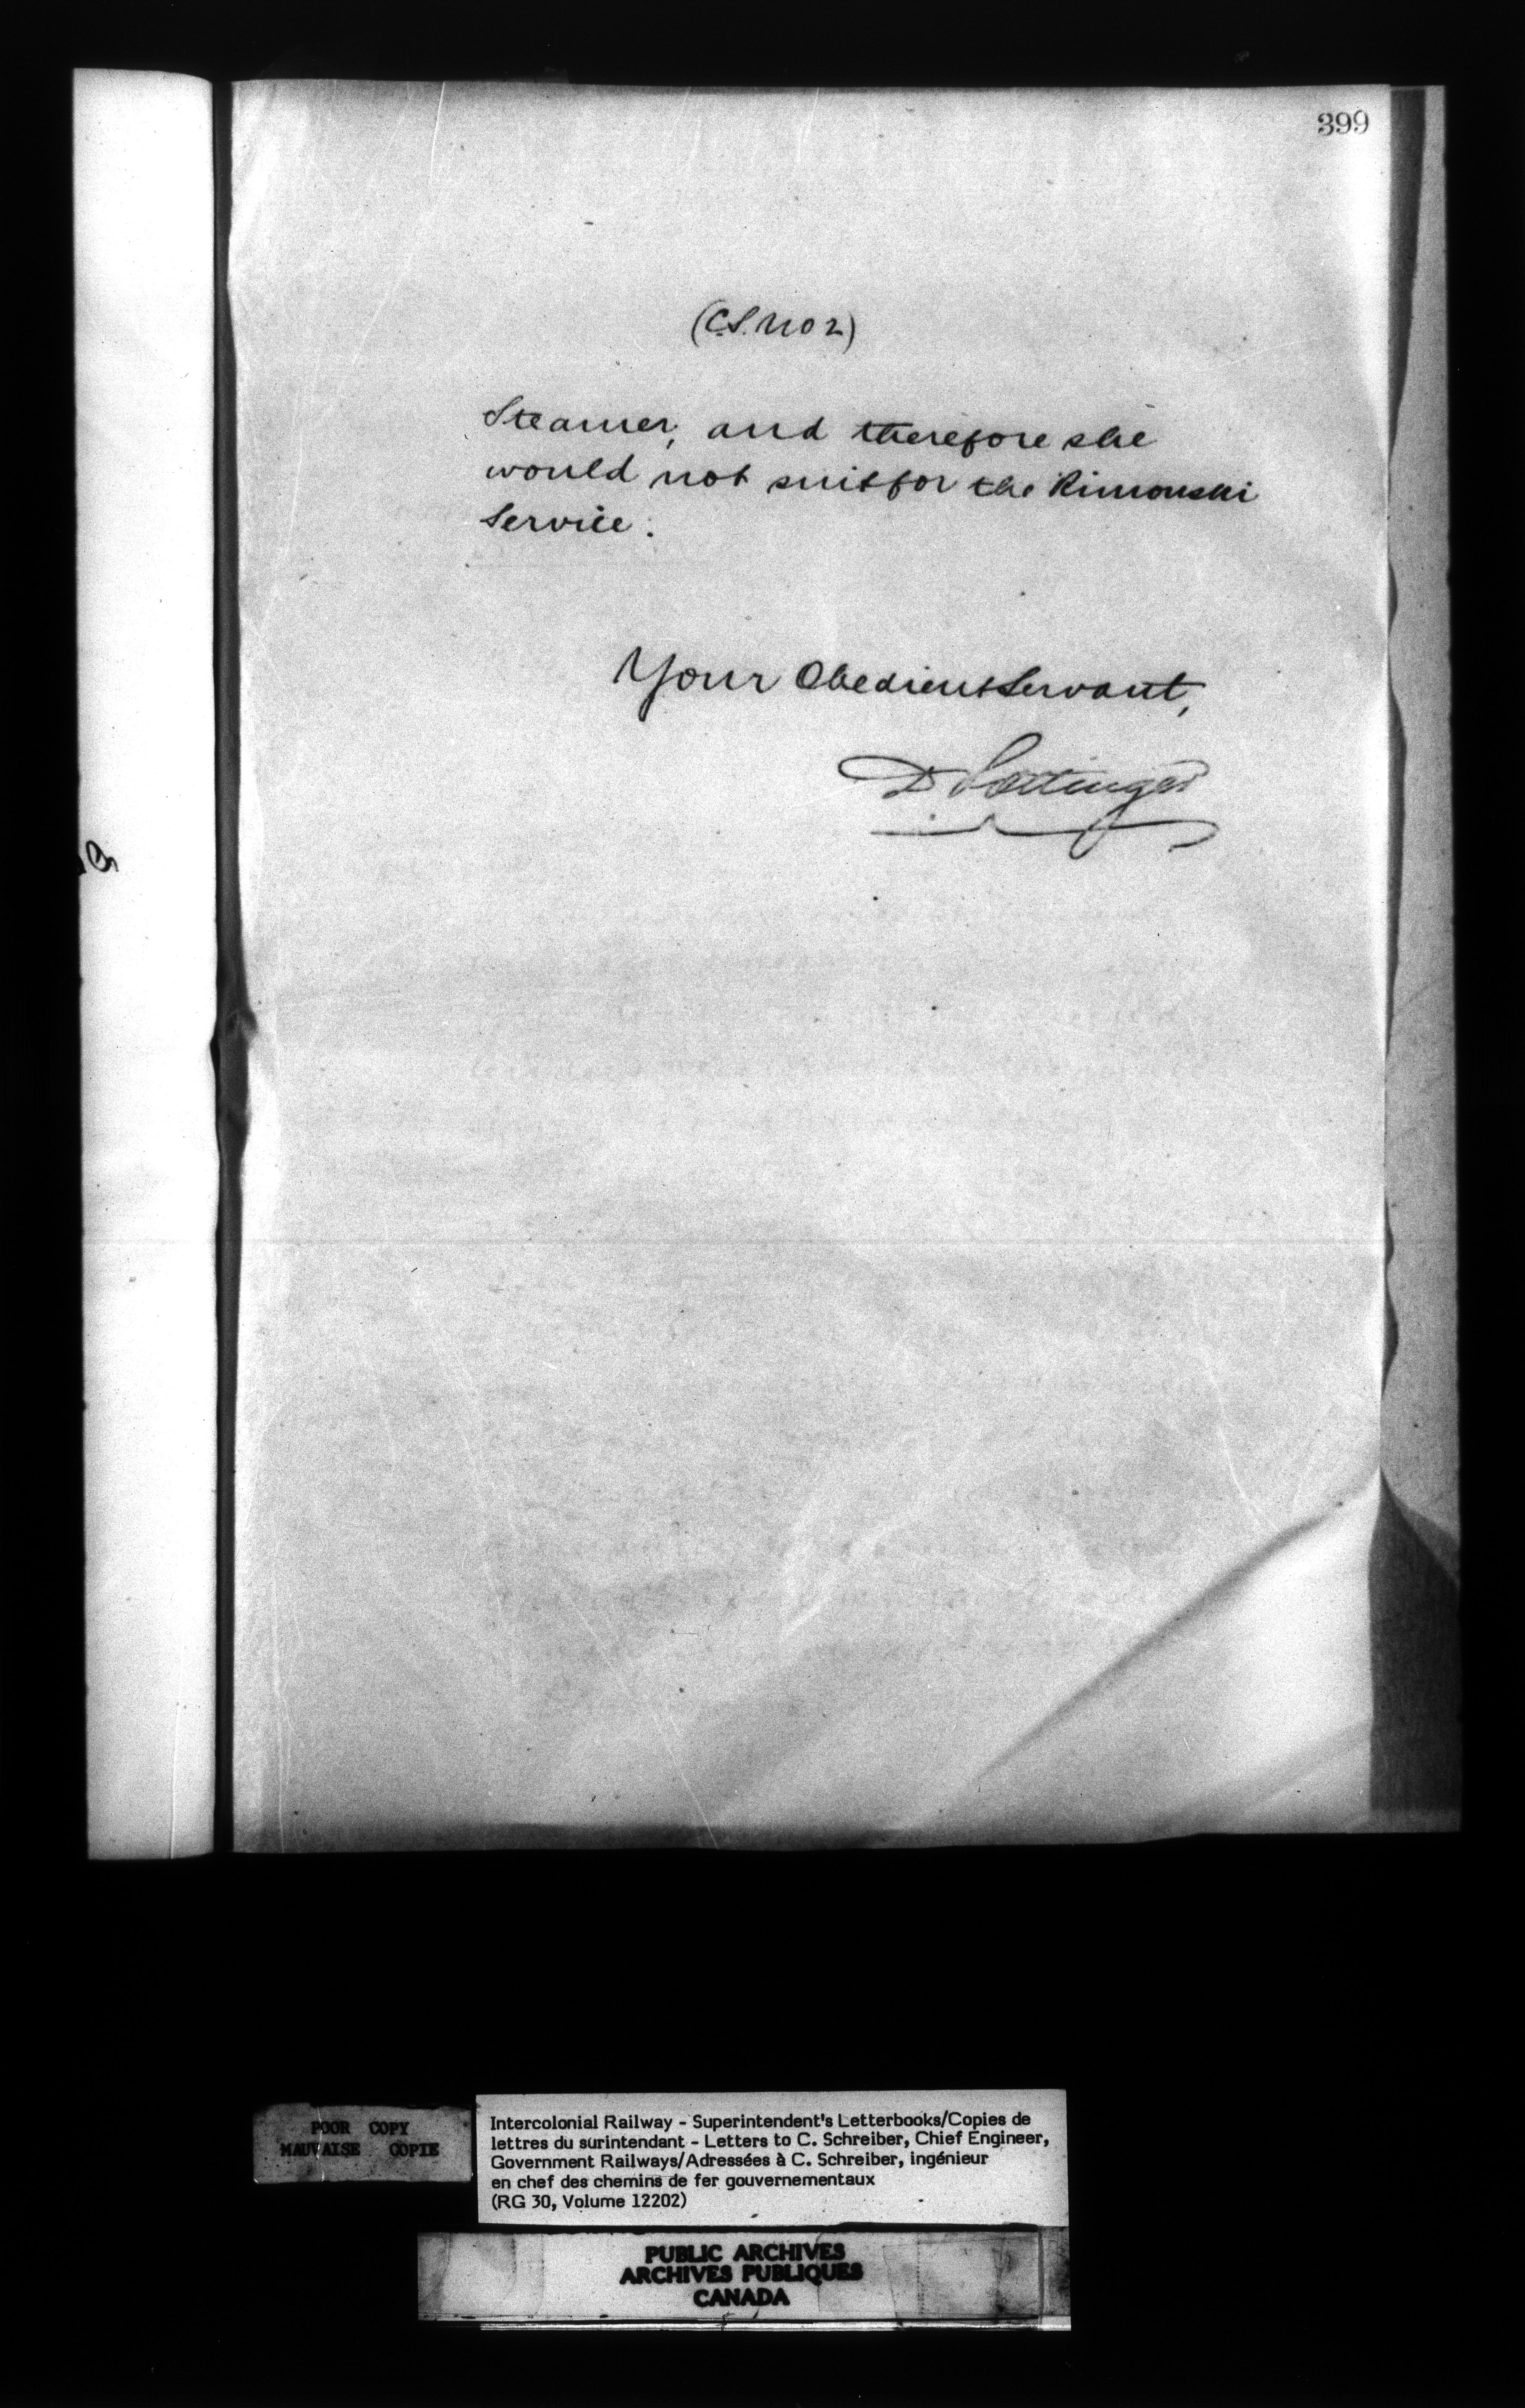 399
(C.S. No 2)
Steamer, and therefore she
would not suit for the Rimouski
Service.
Your Obedient Servant,
D Pottinger
POOR COPY
MAUVAISE COPIE
Intercolonial Railway - Superintendent's Letterbooks/Copies de
lettres du surintendant - Letters to C. Schreiber, Chief Engineer,
Government Railways/Adressées à C. Schreiber, ingénieur
en chef des chemins de fer gouvernementaux
(RG 30, Volume 12202)
PUBLIC ARCHIVES
ARCHIVES PUBLIQUES
CANADA